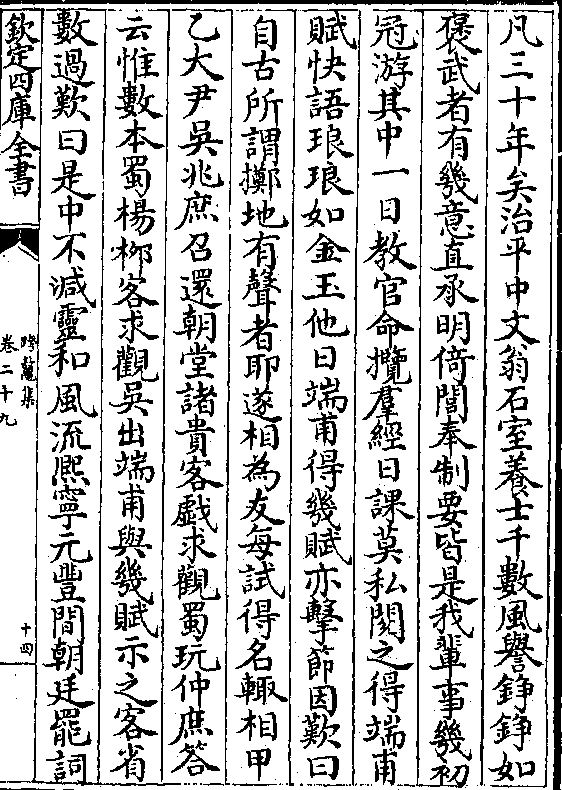 凡三十年矣治平中文翁石室養士千數風譽錚錚如
褒武者有幾意直承明倚閣奉制要皆是我輩事幾初
冠游其中一日教官命攬羣經日課莫私閱之得端甫
賦快語琅琅如金玉他日端甫得幾賦亦擊節因歎曰
自古所謂擲地有聲者耶遂相為友每試得名輙相甲
乙大尹吳兆庶召還朝堂諸貴客戲求觀蜀玩仲庶答
云惟數本蜀楊栁客求觀吳出端甫與幾賦示之客省
數過歎曰是中不減靈和風流熙寧元豐間朝廷罷詞
欽定四庫全書
跨鼇集
卷二十九
十四